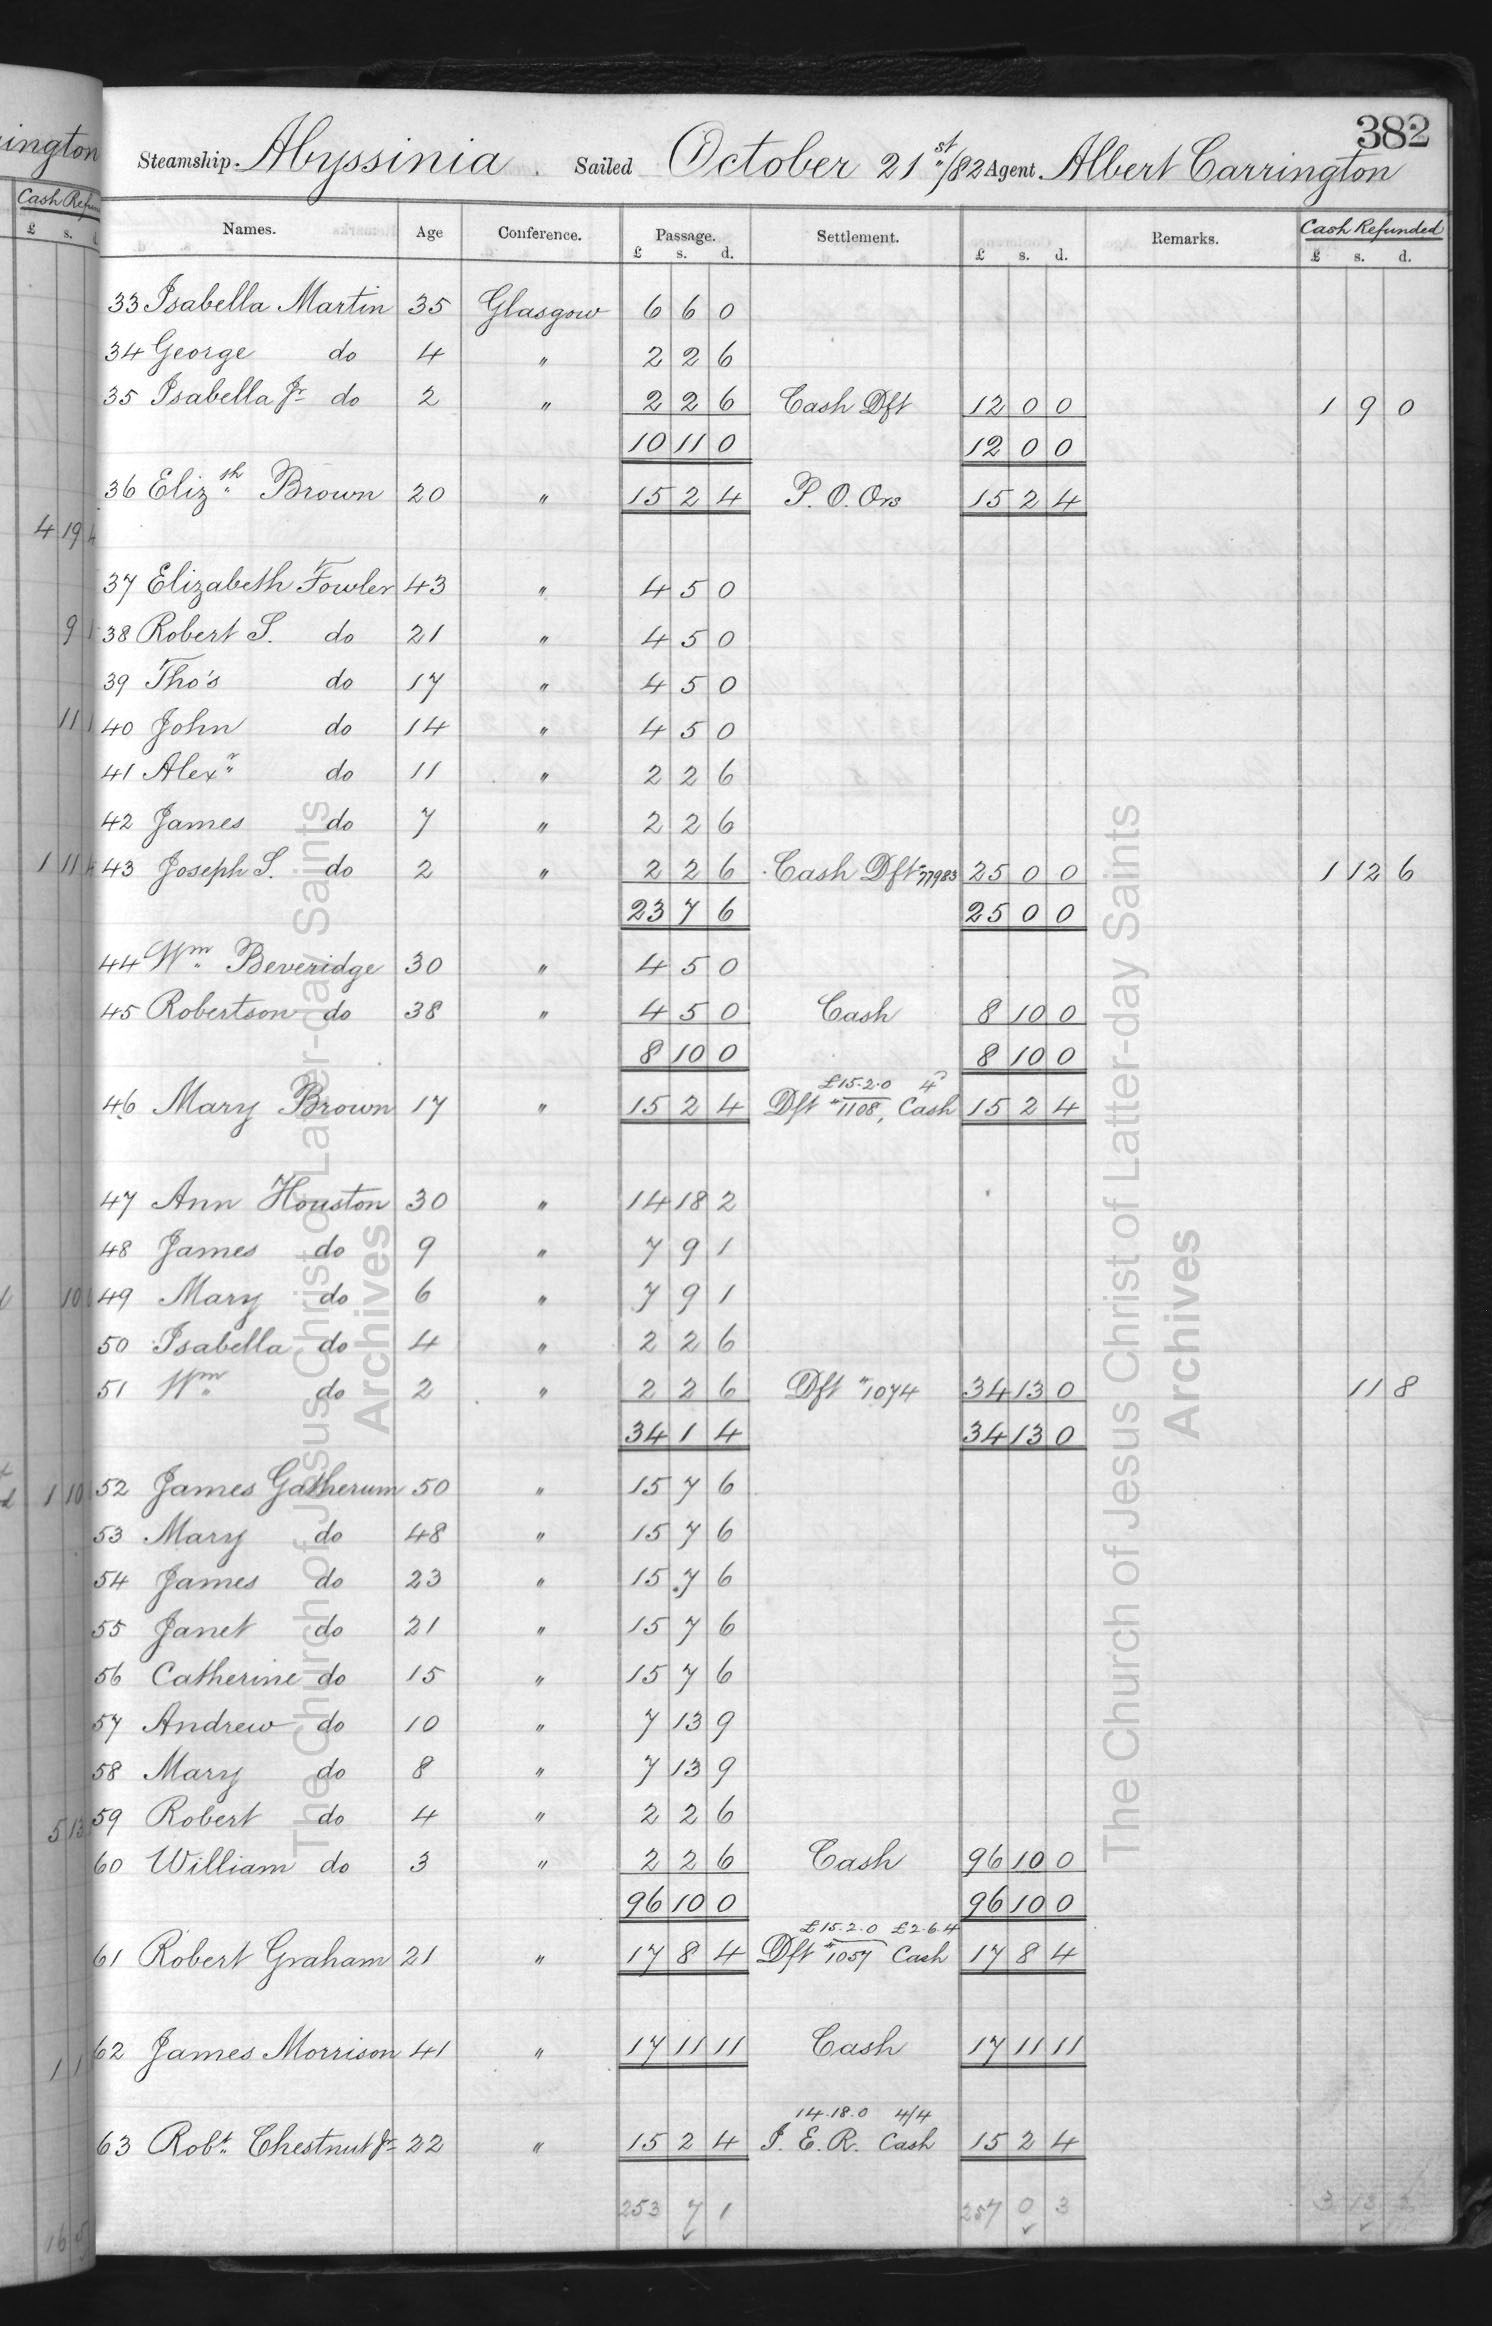 382
Steamship Abyssinia. Sailed October 21st/82 Agent. Albert Carrington
Names. Age Conference. Passage. Settlement. Remarks. Cash Refunded
£ s. d. £ s. d. £ s. d.
33 Isabella Martin 35 Glasgow 6 6 0
34 George do 4 " 2 2 6
35 Isabella Jr do 2 " 2 2 6 Cash Dft 12 0 0 1 9 0
10 11 0 12 0 0
36 Elizth Brown 20 " 15 2 4 P. O. Ors 15 2 4
37 Elizabeth Fowler 43 " 4 5 0
38 Robert S. do 21 " 4 5 0
39 Tho's do 17 " 4 5 0
40 John do 14 " 4 5 0
41 Alexr do 11 " 2 2 6
42 James do 7 " 2 2 6
43 Joseph S. do 2 " 2 2 6 Cash Dft "77983 25 0 0 1 12 6
23 7 6 25 0 0
44 Wm Beveridge 30 " 4 5 0
45 Robertson do 38 " 4 5 0 Cash 8 10 0
8 10 0 8 10 0
£15.2.0 4
46 Mary Brown 17 " 15 2 4 Dft "1108, Cash 15 2 4
47 Ann Houston 30 " 14 18 2
48 James do 9 " 7 9 1
49 Mary do 6 " 7 9 1
50 Isabella do 4 " 2 2 6
51 Wm do 2 " 2 2 6 Dft "1074 34 13 0 11 8
34 1 4 34 13 0
52 James Gatherum 50 " 15 7 6
53 Mary do 48 " 15 7 6
54 James do 23 " 15 7 6
55 Janet do 21 " 15 7 6
56 Catherine do 15 " 15 7 6
57 Andrew do 10 " 7 13 9
58 Mary do 8 " 7 13 9
59 Robert do 4 " 2 2 6
60 William do 3 " 2 2 6 Cash 96 10 0
96 10 0 96 10 0
£15.2.0 £2.6.4
61 Robert Graham 21 " 17 8 4 Dft "1057 Cash 17 8 4
62 James Morrison 41 " 17 11 11 Cash 17 11 11
14.18.0 4/4
63 Robt. Chestnut Jr 22 " 15 2 4 I. E. R. Cash 15 2 4
253 7 1 257 0 3 3 13 2
ington
Cash Refun
£ s. d
4 19 4
9
11
1 11
10
1 10
5 13
1 1
16 5
The Church of Jesus Christ of Latter-day Saints
Archives
The Church of Jesus Christ of Latter-day Saints
Archives